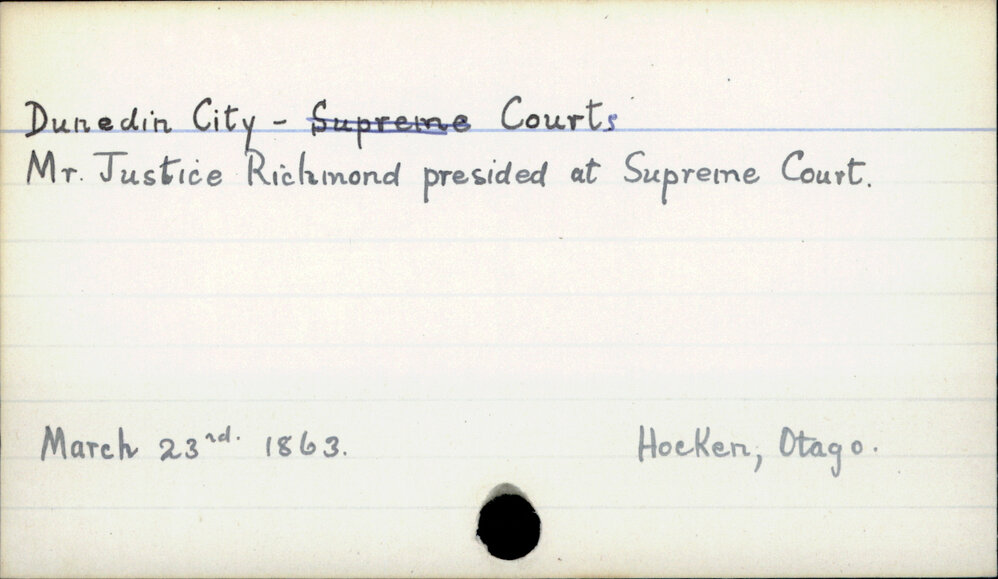 Dunedin City - Supreme Courts
Mr. Justice Richmond presided at Supreme Court.
March 23rd. 1863.
Hocken, Otago.